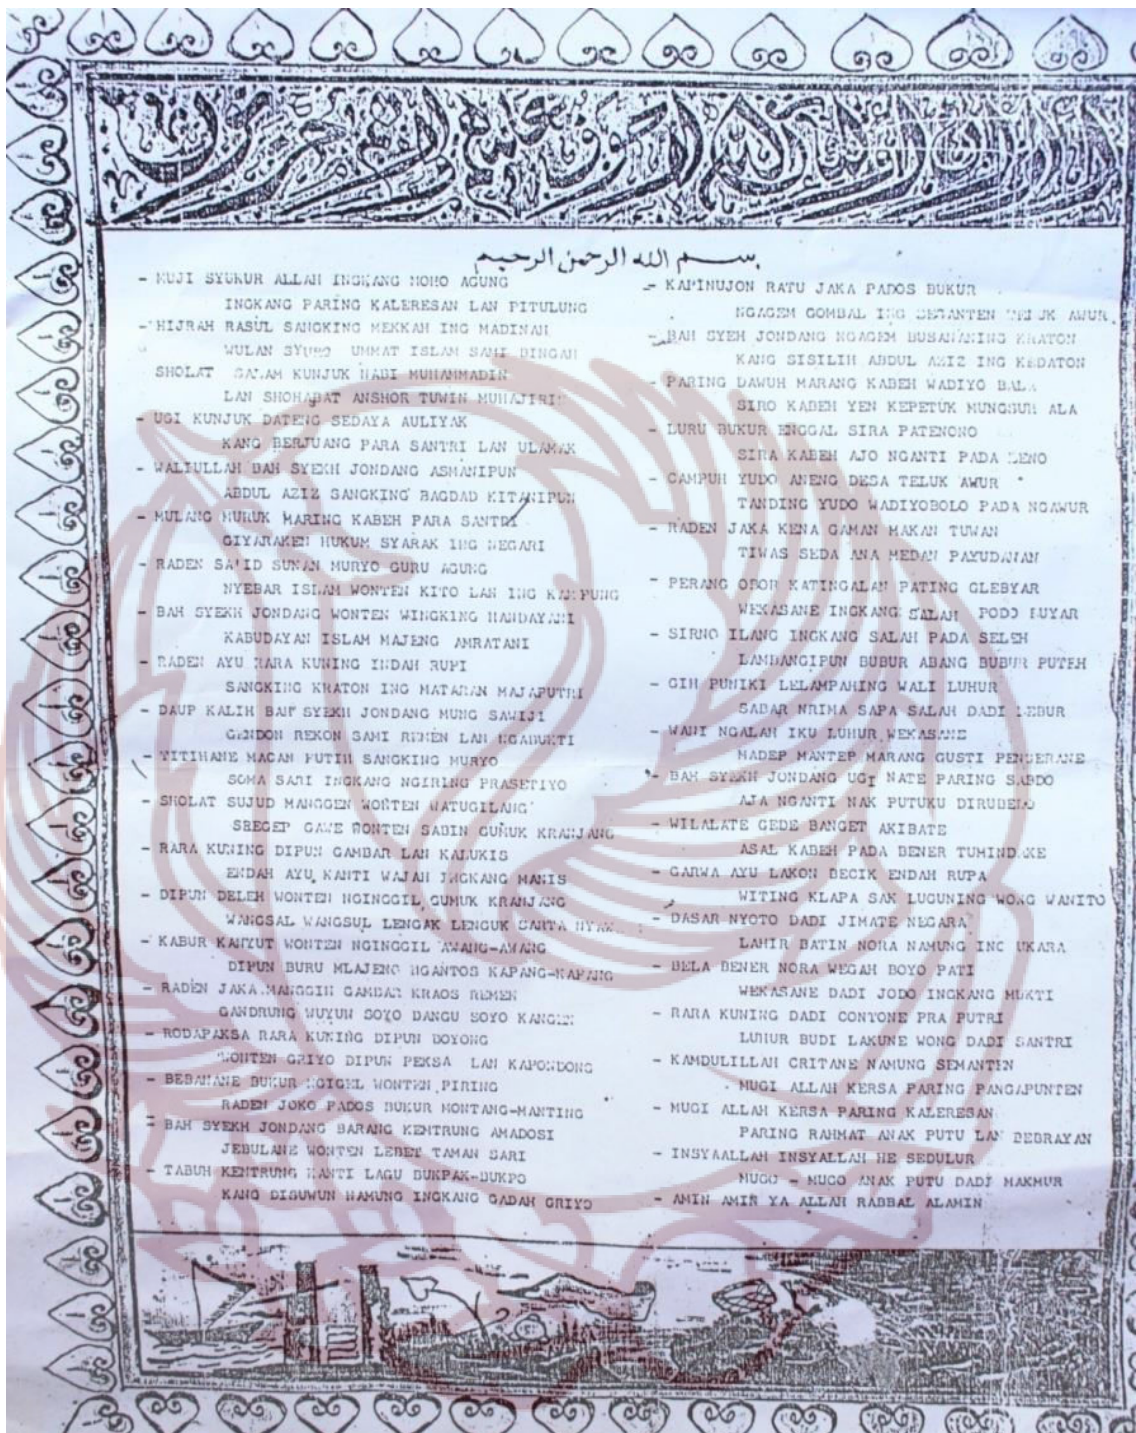 الا ان اولياء الله لا خوف عليهم ولا هم يحزنون
بسم الله الرحمن الرحيم
- MUJI SYUKUR ALLAH INGKANG MOHO AGUNG
INGKANG PARING KALERESAN LAN PITULUNG
- HIJRAH RASUL SANGKING MEKKAH ING MADINAH
WULAN SYURO UMMAT ISLAM SAMI BINGAH
SHOLAT SALAM KUNJUK NABI MUHAMMADIN
LAN SHOHABAT ANSHOR TUWIN MUHAJIRIN
- UGI KUNJUK DATENG SEDAYA AULIYAK
KANG BERJUANG PARA SANTRI LAN ULAMAK
- WALIULLAH BAH SYEKH JONDANG ASMANIPUN
ABDUL AZIZ SANGKING BAGDAD KITANIPUN
- MULANG MURUK MARING KABEH PARA SANTRI
GIYARAKEN HUKUM SYARAK ING NEGARI
- RADEN SA'ID SUNAN MURYO GURU AGUNG
NYEBAR ISLAM WONTEN KITO LAN ING KAMPUNG
- BAH SYEKH JONDANG WONTEN WINGKING HANDAYANI
KABUDAYAN ISLAM MAJENG AMRATANI
- RADEN AYU RARA KUNING INDAH RUPI
SANGKING KRATON ING MATARAM MAJAPUTRI
- DAUP KALIH BAH SYEKH JONDANG MUNG SAWIJI
GENDON REKON SAMI REMEN LAN NGABUKTI
- TITIHANE MACAN PUTIH SANGKING MURYO
SOMA SARI INGKANG NGIRING PRASETIYO
- SHOLAT SUJUD MANGGEN WONTEN WATUGILANG
SREGEP GAWE WONTEN SABIN GUMUK KRANJANG
- RARA KUNING DIPUN GAMBAR LAN KALUKIS
ENDAH AYU KANTI WAJAH INGKANG MANIS
- DIPUN DELEH WONTEN NGINGGIL GUMUK KRANJANG
WANGSAL WANGSUL LENGAK LENGUK SARTA
- KABUR KANYUT WONTEN NGINGGIL AWANG-AWANG
DIPUN BURU MLAJENG NGANTOS KAPANG-KAPANG
- RADEN JAKA MANGGIH GAMBAR KRAOS REMEN
GANDRUNG WUYUN SOYO DANGU SOYO KANGEN
- RODAPAKSA RARA KUNING DIPUN BOYONG
WONTEN GRIYO DIPUN PEKSA LAN KAPONDONG
- BEBANANE BUKUR NGIGEL WONTEN PIRING
RADEN JOKO PADOS BUKUR MONTANG-MANTING
- BAH SYEKH JONDANG BARANG KENTRUNG AMADOSI
JEBULANE WONTEN LEBET TAMAN SARI
- TABUH KENTRUNG KANTI LAGU BUKPAK-BUKPO
KANG DISUWUN NAMUNG INGKANG GADAH GRIYO
- KAPINUJON RATU JAKA PADOS BUKUR
NGAGEM GOMBAL ING SEGANTEN TELUK AWUR
- BAH SYEH JONDANG NGAGEM BUSANANING KRATON
KANG SISILIH ABDUL AZIZ ING KEDATON
- PARING DAWUH MARANG KABEH WADIYO BALA
SIRO KABEH YEN KEPETUK MUNGSUH ALA
- LURU BUKUR ENGGAL SIRA PATENONO
SIRA KABEH AJO NGANTI PADA LENO
- CAMPUH YUDO ANENG DESA TELUK AWUR
TANDING YUDO WADIYOBOLO PADA NGAWUR
- RADEN JAKA KENA GAMAN MAKAN TUWAN
TIWAS SEDA ANA MEDAN PAYUDANAN
- PERANG OBOR KATINGALAN PATING GLEBYAR
WEKASANE INGKANG SALAH PODO BUYAR
- SIRNO ILANG INGKANG SALAH PADA SELEH
LAMBANGIPUN BUBUR ABANG BUBUR PUTEH
- GIH PUNIKI LELAMPAHING WALI LUHUR
SABAR NRIMA SAPA SALAH DADI LEBUR
- WANI NGALAH IKU LUHUR WEKASANE
MADEP MANTEP MARANG GUSTI PENGERANE
- BAH SYEKH JONDANG UGI NATE PARING SABDO
AJA NGANTI NAK PUTUKU DIRUBEDO
- WILALATE GEDE BANGET AKIBATE
ASAL KABEH PADA BENER TUMINDAKE
- GARWA AYU LAKON BECIK ENDAH RUPA
WITING KLAPA SAK LUGUNING WONG WANITO
- DASAR NYOTO DADI JIMATE NEGARA
LAHIR BATIN NORA NAMUNG ING UKARA
- BELA BENER NORA WEGAH BOYO PATI
WEKASANE DADI JODO INGKANG MUKTI
- RARA KUNING DADI CONTONE PRA PUTRI
LUHUR BUDI LAKUNE WONG DADI SANTRI
- KAMDULILLAH CRITANE NAMUNG SEMANTEN
MUGI ALLAH KERSA PARING PANGAPUNTEN
- MUGI ALLAH KERSA PARING KALERESAN
PARING RAHMAT ANAK PUTU LAN BEBRAYAN
- INSYAALLAH INSYALLAH HE SEDULUR
MUGO - MUGO ANAK PUTU DADI MAKMUR
- AMIN AMIN YA ALLAH RABBAL ALAMIN